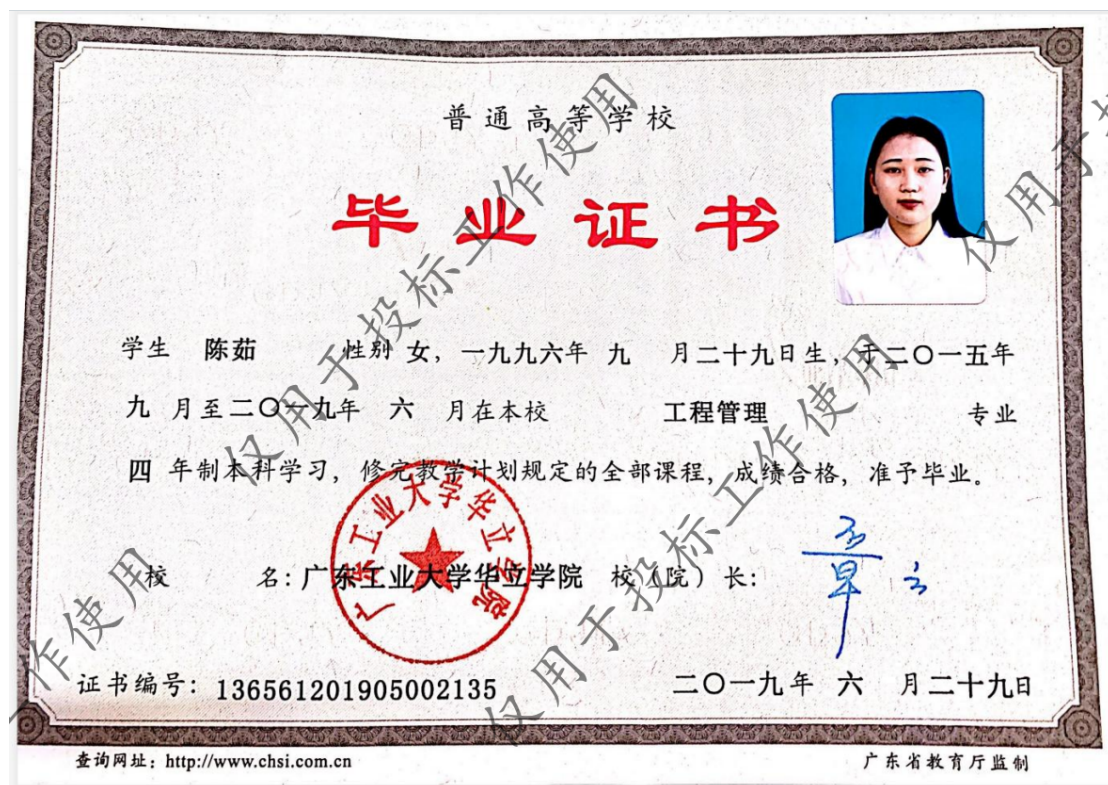 普通高等学校
毕业证书
学生 陈茹 性别 女，一九九六年 九 月二十九日生，于二〇一五年
九 月至二〇一九年 六 月在本校 工程管理 专业
四 年制本科学习，修完教学计划规定的全部课程，成绩合格，准予毕业。
校 名：广东工业大学华立学院 校（院）长：
广东工业大学华立学院
证书编号：136561201905002135 二〇一九年 六 月二十九日
查询网址：http://www.chsi.com.cn 广东省教育厅监制
仅用于投标工作使用
仅用于投标工作使用
仅用于投
作使用